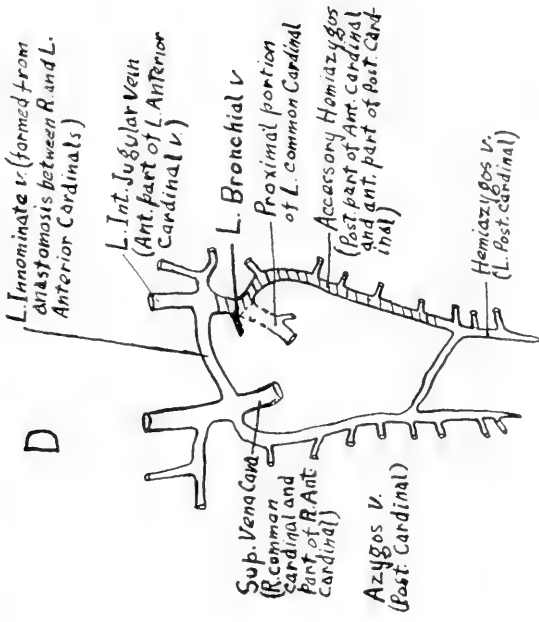 D
L. Innominate v. (formed from
anastomosis between R. and L.
Anterior Cardinals)
L. Int. Jugular vein
(Ant. part of L. Anterior
Cardinal v.)
L. Bronchial v
Proximal portion
of L. common Cardinal
Accessory Hemiazygos
(Post. part of Ant. Cardinal
and ant. part of Post. Card-
inal)
Hemiazygos v.
(L. Post. cardinal)
Sup. Vena Cava
(R. common
cardinal and
part of R. Ant.
cardinal)
Azygos v.
(Post. Cardinal)